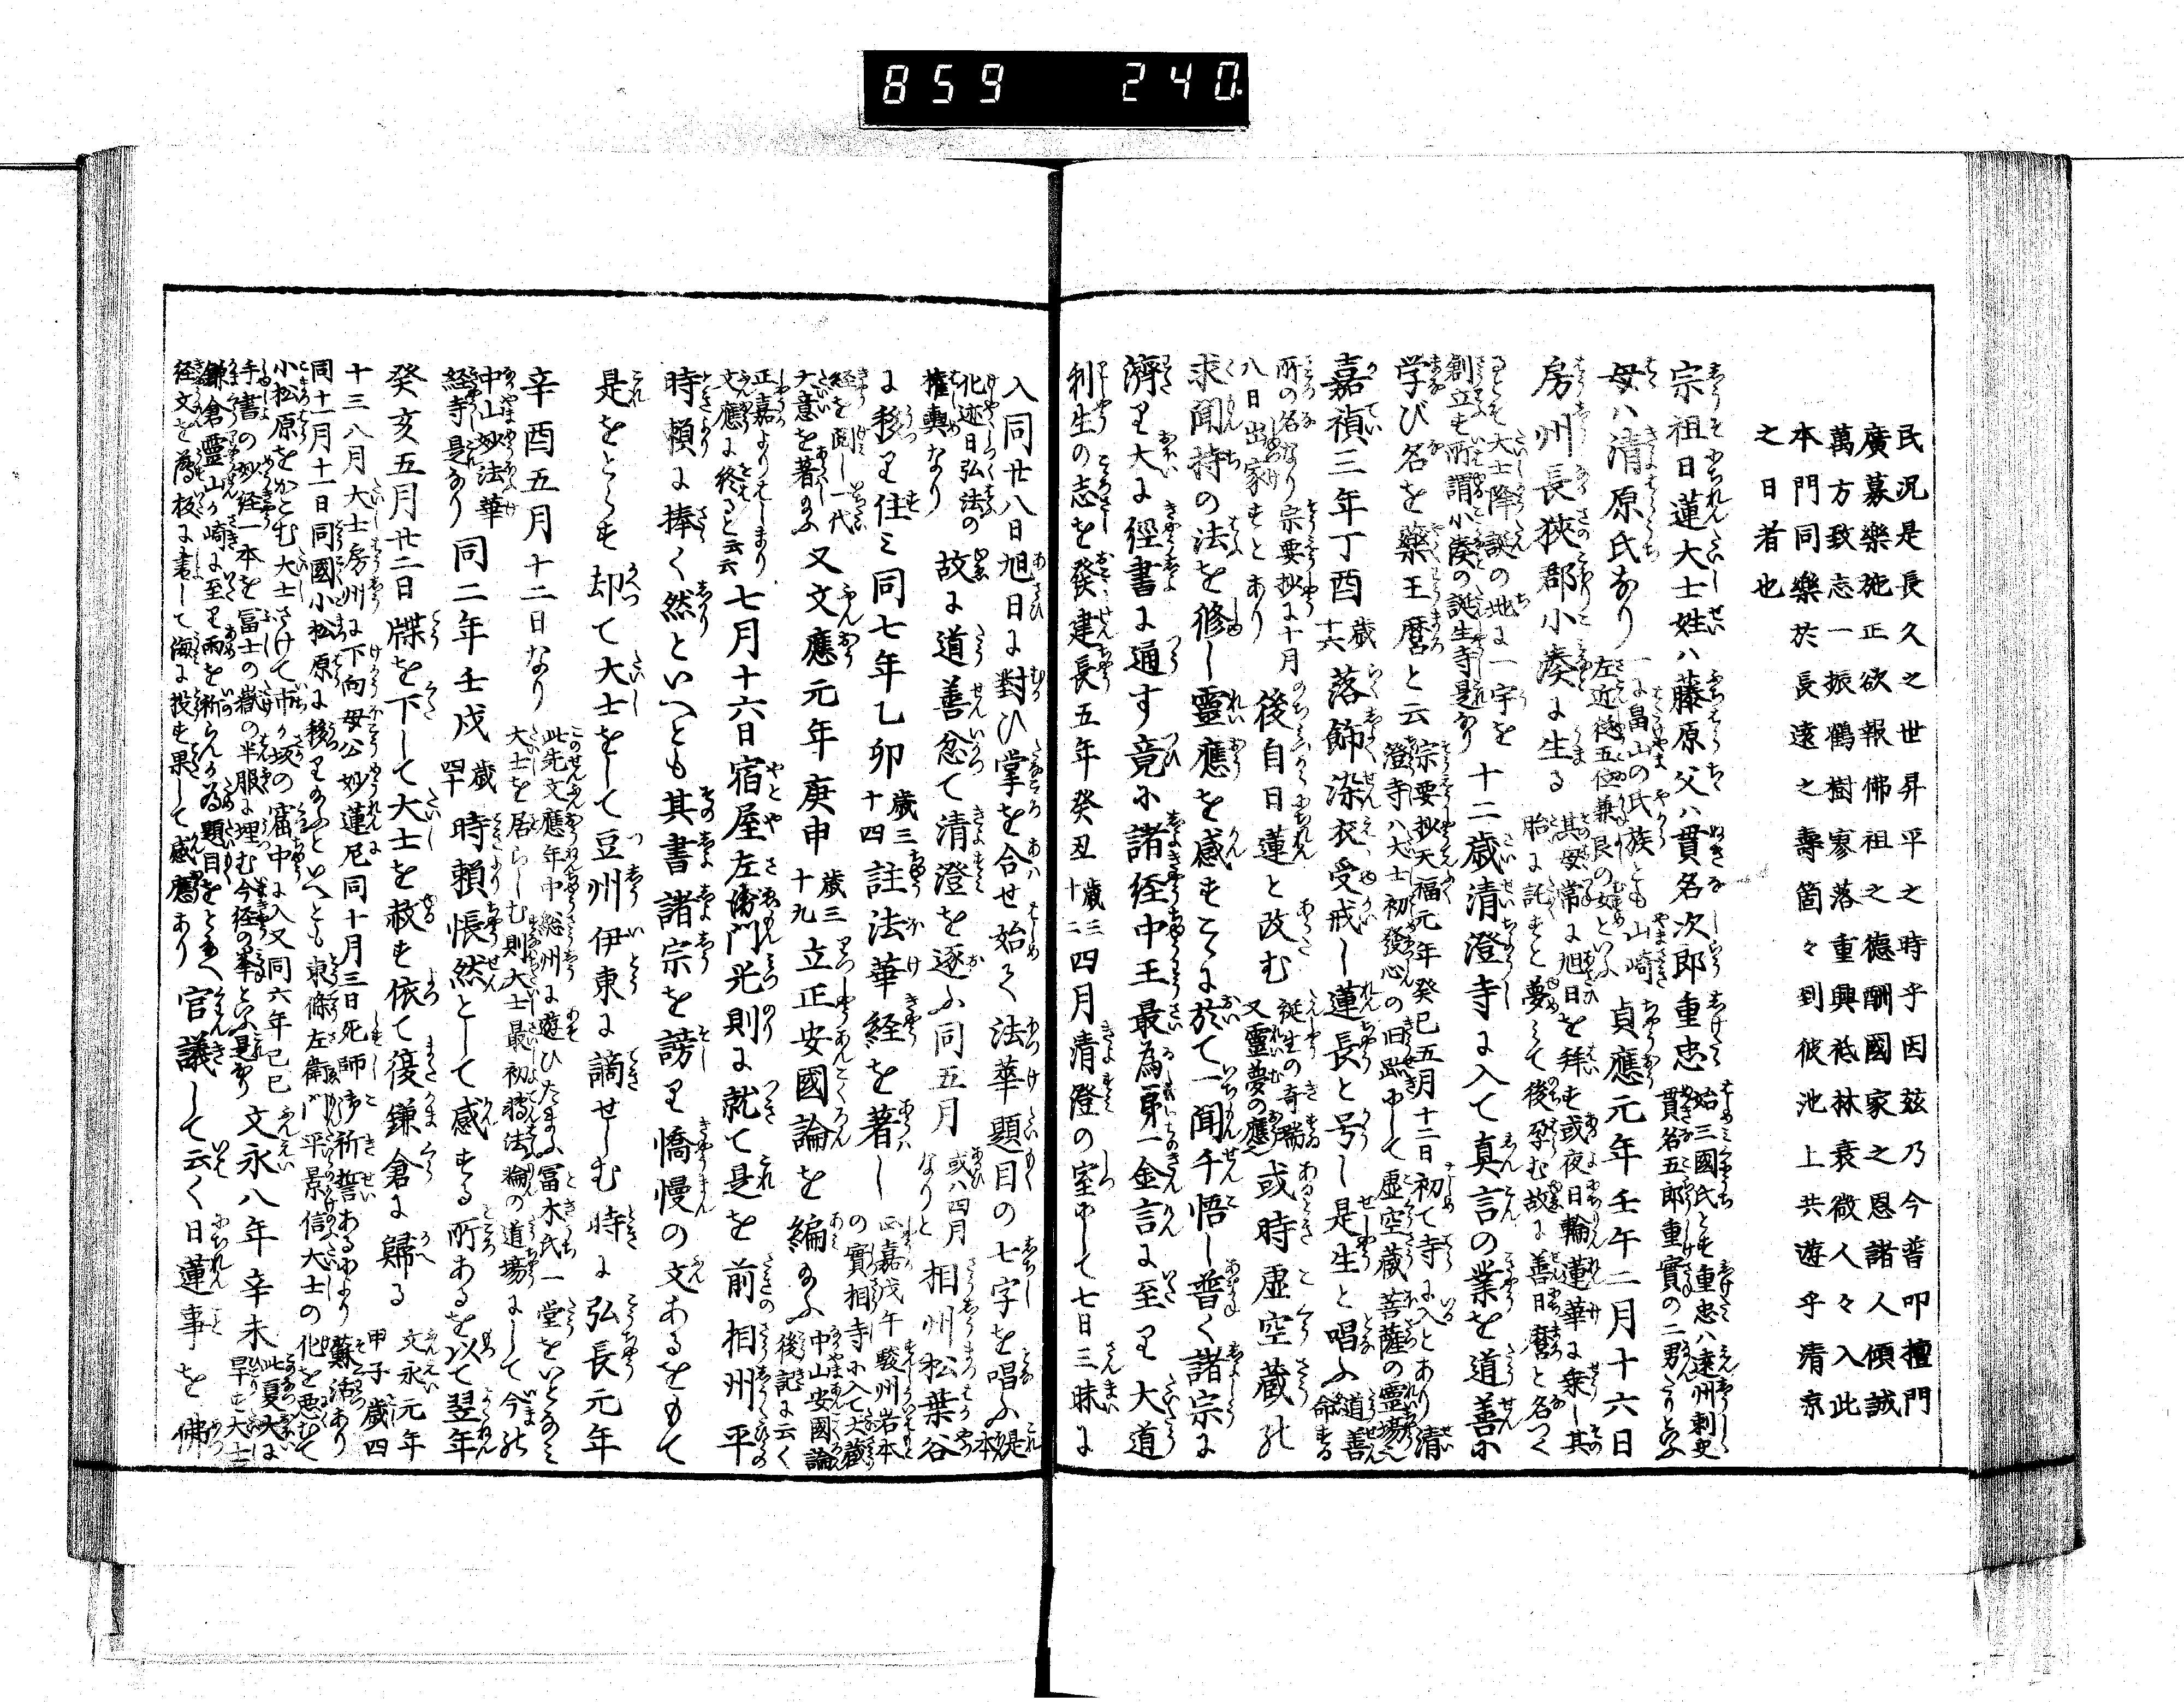 859 240.
民況是長久之世昇平之時乎因玆乃今普叩擅門
廣募樂施正欲報佛祖之德酬國家之恩諸人傾誠
萬方致志一振鶴樹寥落重興祗林衰微人々入此
本門同樂於長遠之壽箇々到彼池上共遊乎清凉
之日者也
宗祖日蓮大士姓ハ藤原父ハ貫名次郎重忠 始三國氏とす重忠ハ遠州刺史貫名五郎重實の二男なりと云ふ
母ハ清原氏なり 一に畠山の氏族とも山崎左近徒五位兼良の女といふ 貞應元年壬午二月十六日
房州長狹郡小湊に生る 其母常に旭日を拜す或夜日輪蓮華に乗し其胎に託すと夢ミて後孕む故に善日麿と名つく
るとそ大士降誕の地に一宇を創立す所謂小湊の誕生寺是なり 十二歳清澄寺に入て真言の業を道善に
学び名を藥王麿と云 宗要抄天福元年癸巳五月十二日初て寺に入とあり清澄寺ハ大士初發心の旧跡にして虚空蔵菩薩の靈場也
嘉禎三年丁酉 歳十六 落飾染衣受戒し蓮長と号し是生と唱ふ 道善命する
所の名なり宗要抄に十月八日出家すとあり 後自日蓮と改む 誕生の奇瑞又靈夢の應也 或時虚空蔵の
求聞持の法を修し靈應を感すこゝに於て一聞千悟し普く諸宗に
濟り大に經書に通す竟に諸経中王最為第一金言に至り大道
利生の志を發建長五年癸丑 歳三十二 四月清澄の室にして七日三昧に
入同廿八日旭日に對ひ掌を合せ始く法華題目の七字を唱ふ 是本
化迹日弘法の權輿なり 故に道善忿て清澄を逐ふ同五月 或ハ四月なりと 相州松葉谷
に移り住ミ同七年乙卯 歳三十四 註法華経を著し 正嘉戊午駿州岩本の實相寺に入て大蔵
経を閲し一代大意を著し給ふ 又文應元年庚申 歳三十九 立正安國論を編給ふ 中山安國論後記に云く
正嘉よりはしまり文應に終ると云云 七月十六日宿屋左衛門光則に就て是を前相州平
時頼に捧く然といへとも其書諸宗を謗り憍慢の文あるをもて
是をとらす却て大士をして豆州伊東に謫せしむ時に弘長元年
辛酉五月十二日なり 此先文應年中総州に遊ひたまふ冨木氏一堂をいとなミ大士を居らしむ則大士最初轉法輪の道場にして今の
中山妙法華経寺是なり 同二年壬戌 歳四十一 時頼悵然として感する所あるを以て翌年
癸亥五月廿二日牒を下して大士を赦す依て後鎌倉に歸る 文永元年甲子歳四
十三八月大士房州に下向母公妙蓮尼同十月三日死師御祈誓あるにより蘇活あり
同十一月十一日同國小松原に移り給ふといへとも東條左衛門平景信大士の化を悪むて
小松原をかこむ大士さけて市か坂の窟中に入又同六年己巳
手書の妙経一本を冨士の嶽の半腹に埋む今径の峯といふ是なり 文永八年辛未 此夏大に旱す大士
鎌倉靈山か崎に至り雨を祈らんか為題目をとなへ
径文を薄板に書して海に投す果して感應あり 官議して云く日蓮事を佛